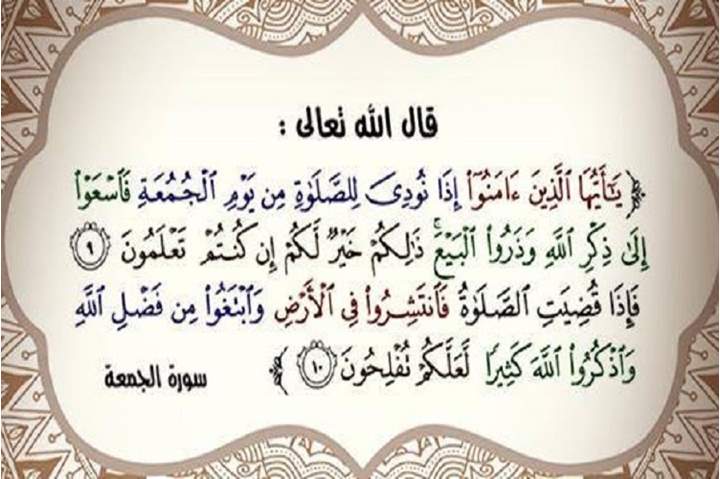 قال الله تعالى :
﴿ يَـٰٓأَيُّهَا ٱلَّذِينَ ءَامَنُوٓا۟ إِذَا نُودِىَ لِلصَّلَوٰةِ مِن يَوْمِ ٱلْجُمُعَةِ فَٱسْعَوْا۟
إِلَىٰ ذِكْرِ ٱللَّهِ وَذَرُوا۟ ٱلْبَيْعَ ۚ ذَٰلِكُمْ خَيْرٌ لَّكُمْ إِن كُنتُمْ تَعْلَمُونَ ٩
فَإِذَا قُضِيَتِ ٱلصَّلَوٰةُ فَٱنتَشِرُوا۟ فِى ٱلْأَرْضِ وَٱبْتَغُوا۟ مِن فَضْلِ ٱللَّهِ
وَٱذْكُرُوا۟ ٱللَّهَ كَثِيرًا لَّعَلَّكُمْ تُفْلِحُونَ ١٠ ﴾ سورة الجمعة